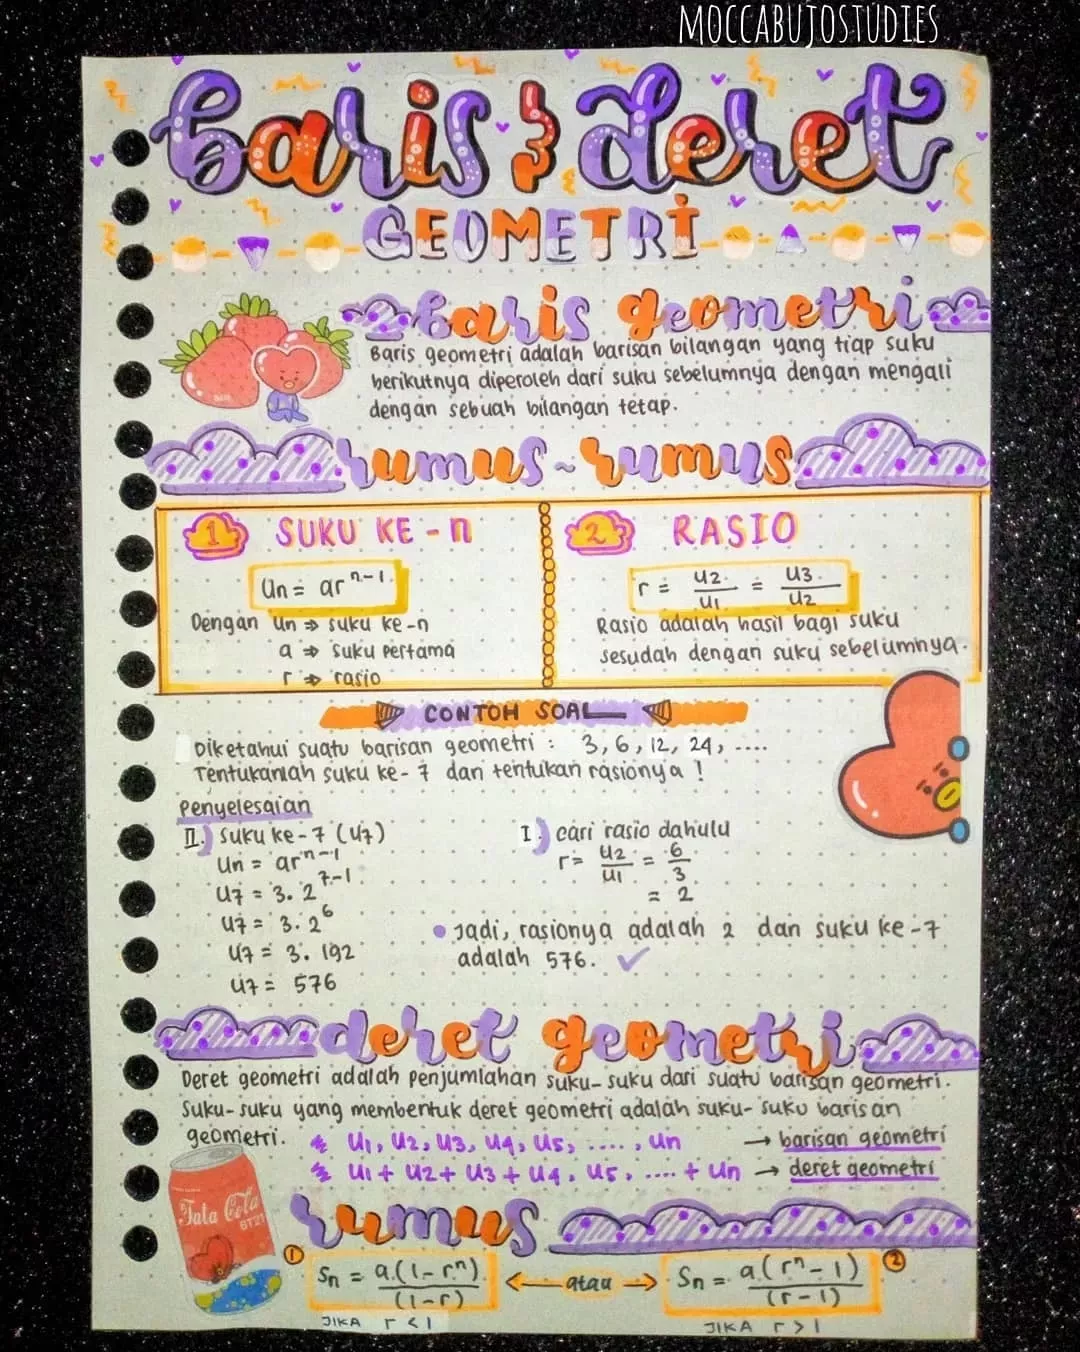 MOCCABUJOSTUDIES
baris & deret
GEOMETRI
baris geometri
Baris geometri adalah barisan bilangan yang tiap suku
berikutnya diperoleh dari suku sebelumnya dengan mengali
dengan sebuah bilangan tetap.
rumus~rumus
1 SUKU KE-n
Un = ar^n-1
Dengan Un ⇒ suku ke-n
a ⇒ suku pertama
r ⇒ rasio
2 RASIO
r = U2/U1 = U3/U2
Rasio adalah hasil bagi suku
sesudah dengan suku sebelumnya.
CONTOH SOAL
Diketahui suatu barisan geometri : 3, 6, 12, 24, ....
Tentukanlah suku ke-7 dan tentukan rasionya !
Penyelesaian
II.) Suku ke-7 (U7)
Un = ar^n-1
U7 = 3.2^7-1
U7 = 3.2^6
U7 = 3.192
U7 = 576
I.) cari rasio dahulu
r = U2/U1 = 6/3
= 2
• Jadi, rasionya adalah 2 dan suku ke-7
adalah 576. ✓
deret geometri
Deret geometri adalah penjumlahan suku-suku dari suatu barisan geometri.
Suku-suku yang membentuk deret geometri adalah suku-suku barisan
geometri.
U1, U2, U3, U4, U5, ...., Un → barisan geometri
U1 + U2 + U3 + U4, U5, .... + Un → deret geometri
Tata Cola
BT21
rumus
1 Sn = a(1-r^n)/(1-r) ← atau → Sn = a(r^n-1)/(r-1) 2
JIKA r < 1
JIKA r > 1